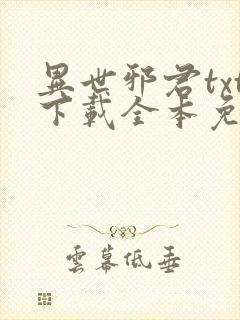 異世邪君txt
下載全本免
雲幕低垂